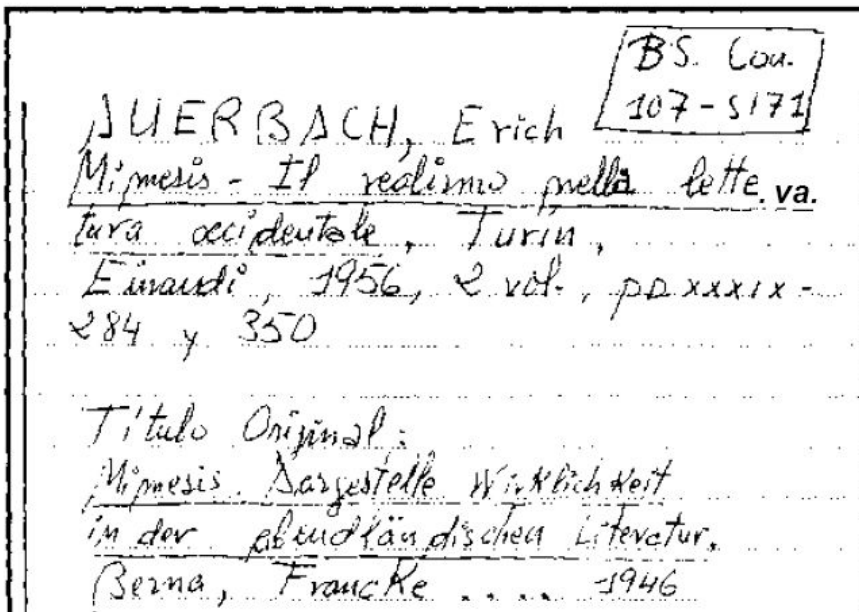 BS. Con.
107-5171
AUERBACH, Erich
Mimesis - Il realismo nella lette. va.
tura occidentale, Turín,
Einaudi, 1956, 2 vol., pp xxxix-
284 y 350
Título Original:
Mimesis. Dargestelle Wirklichkeit
in der abendländischen Literatur.
Berna, Francke .... 1946